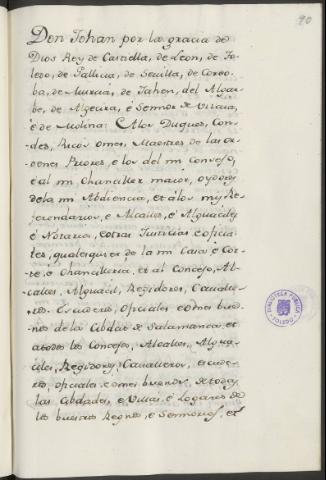 90
Don Johan por la gracia de
Dios Rey de Castiella, de Leon, de To-
ledo, de Gallicia, de Sevilla, de Cordo-
ba, de Murcia, de Jahen, del Algar-
be, de Algecira, é Sennor de Vizcaia,
é de Molina: A los Duques, Con-
des, Ricos omes, Maestres de las or-
denes Priores, é los del mi Consejo,
é al mi Chanciller maior, oydores
de la mi Abdiencia, et á los mis Re-
ferendarios, é Alcalles, é Alguaciles
é Notarios, é otras Justicias é oficia-
les, qualesquier de la mi Casa é Cor-
te, é Chancilleria, et al Concejo, Al-
calles, Alguacil, Regidores, Cavalle-
ros, Escuderos, Oficiales é omes bue-
nos de la Cibdat de Salamanca, et
a todos los Concejos, Alcalles, Algua-
ciles, Regidores, Cavalleros, escude-
ros, oficiales é omes buenos de todas
las Cibdades, é Villas, é Logares de
los nuestros Regnos, é Sennorios, et
BIBLIOTECA PUBLICA
TOLEDO